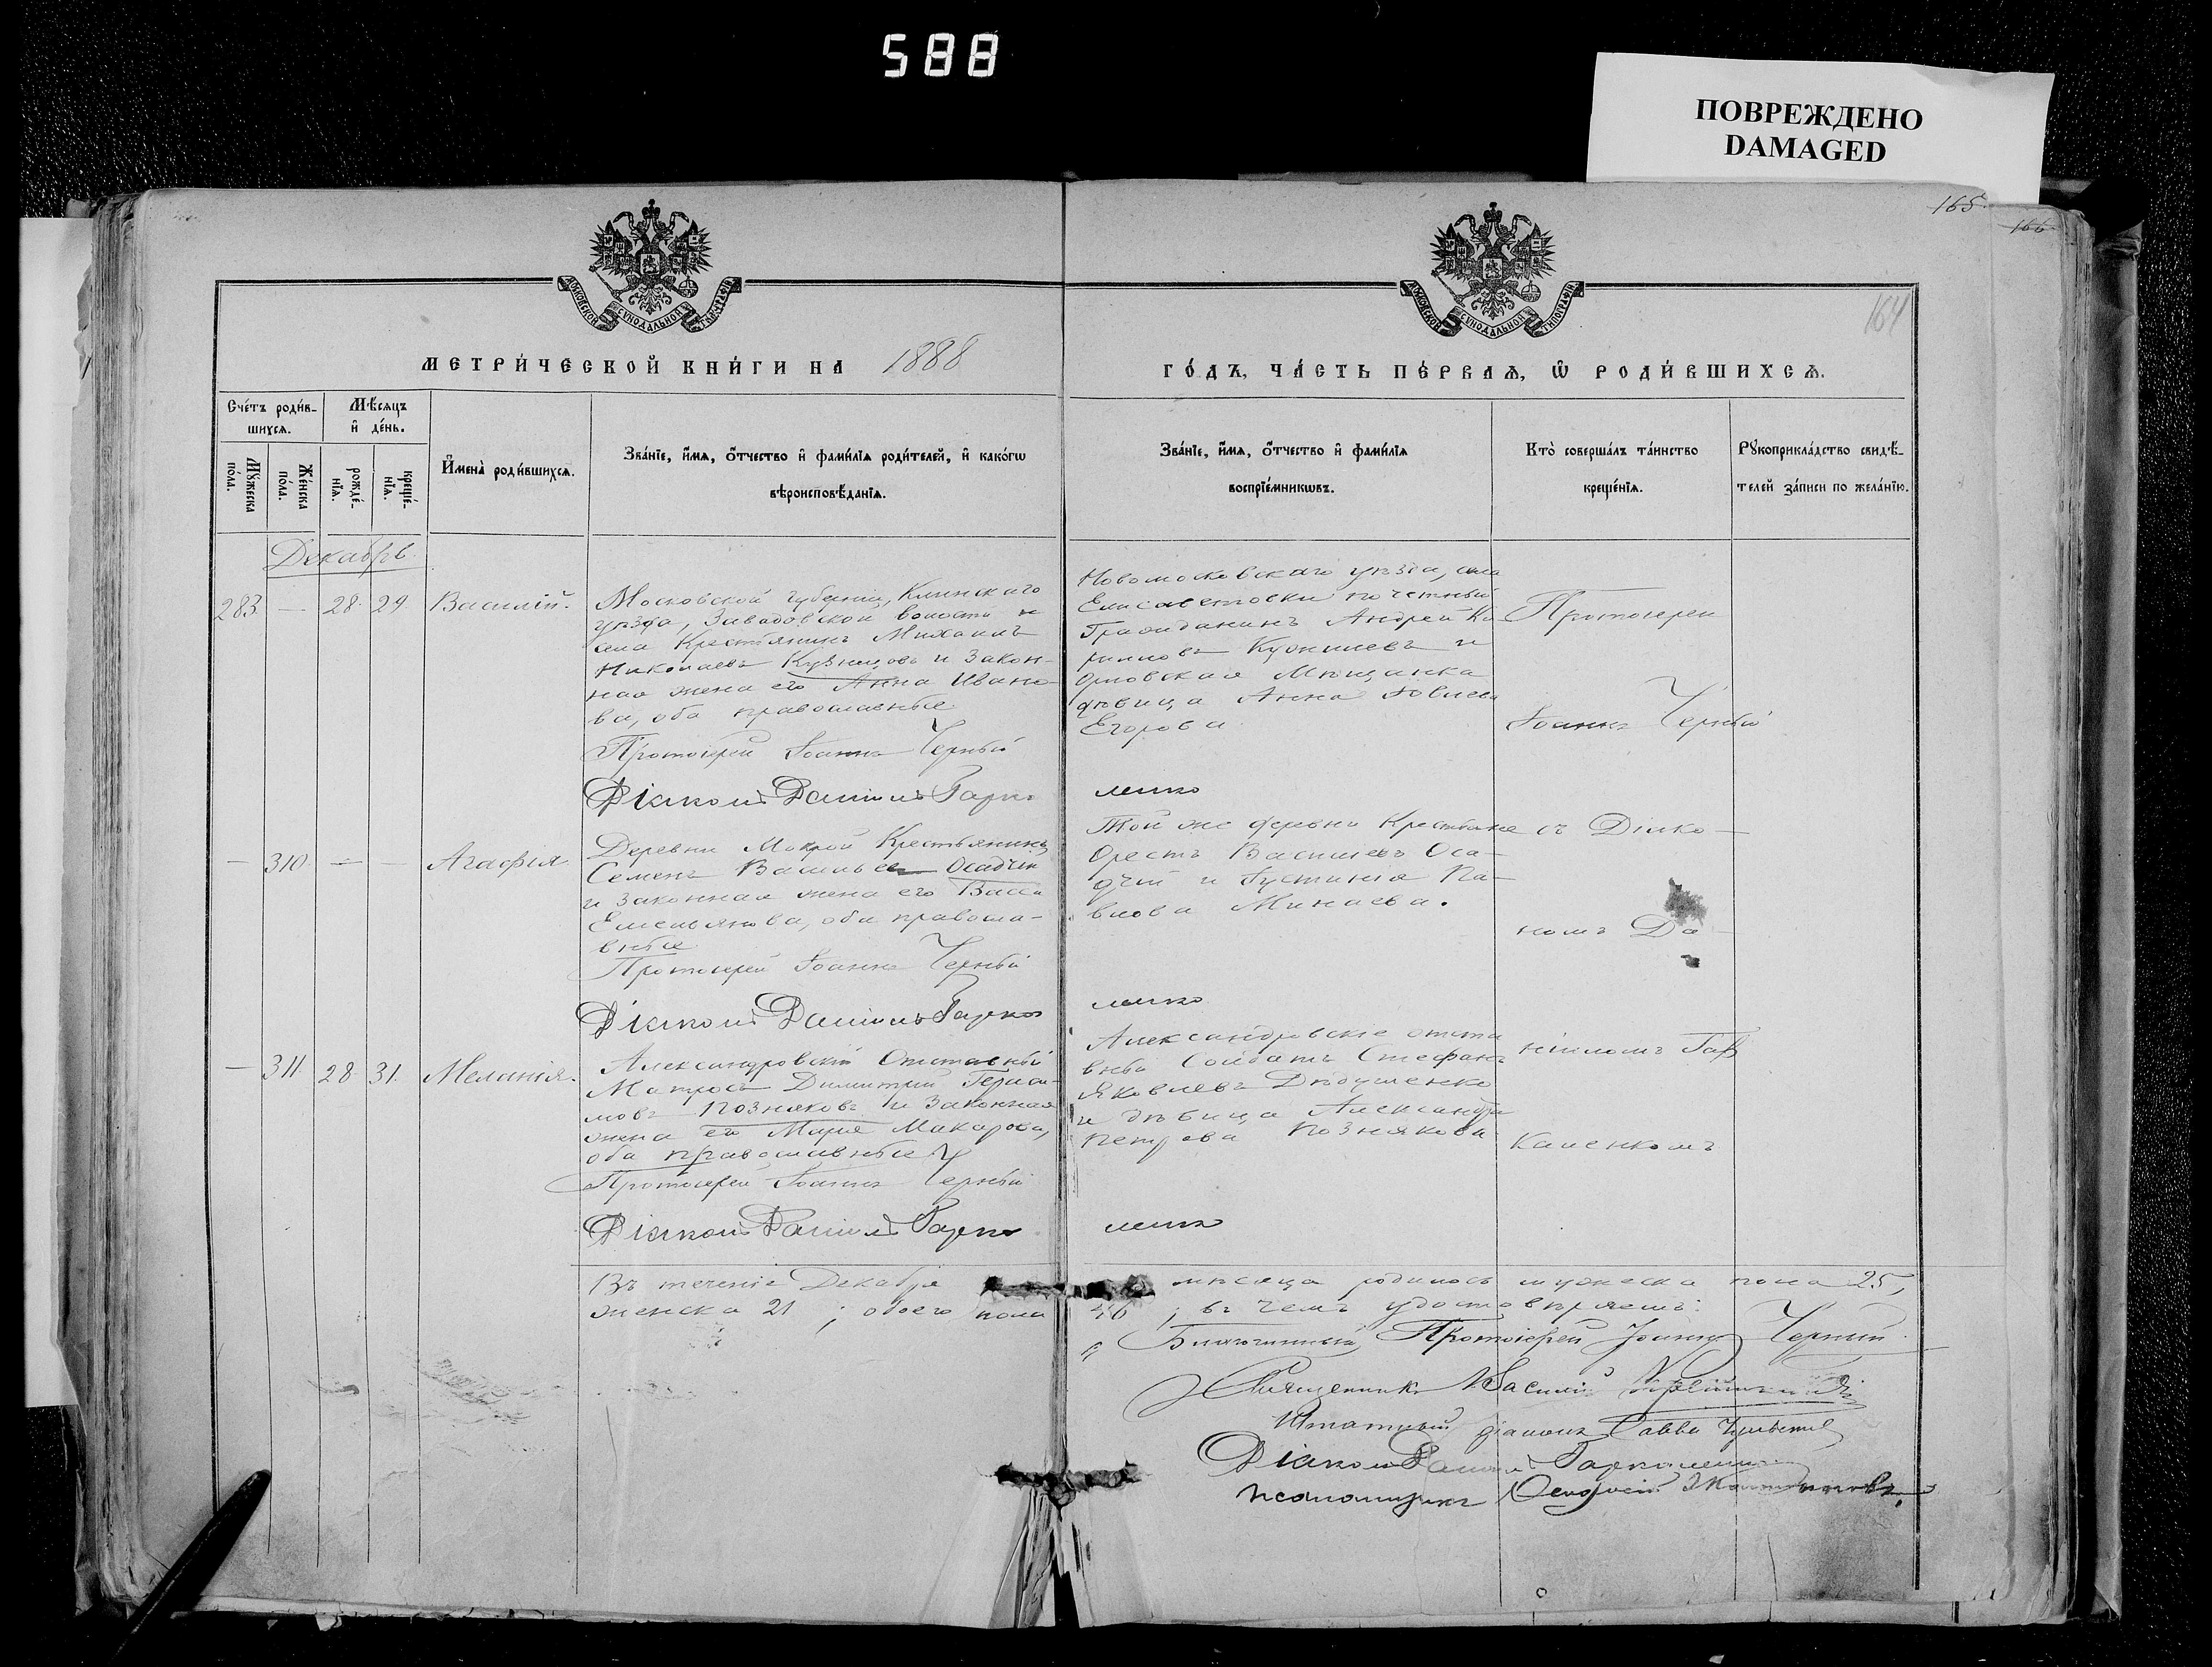 588
ПОВРЕЖДЕНО
DAMAGED
165
166
164
МОСКОВСКОЙ СѴНОДАЛЬНОЙ ТИПОГРАФІИ
МОСКОВСКОЙ СѴНОДАЛЬНОЙ ТИПОГРАФІИ
МЕТРИ́ЧЕСКОЙ КНИ́ГИ НА 1888
ГО́ДЪ, ЧА́СТЬ ПЕ́РВАѦ, Ѡ҆ РОДИ́ВШИХСѦ.
Сче́тъ роди́в-
шихсѧ.
Мѣ́сѧцъ
и҆ де́нь.
Мꙋ́жеска
по́ла.
Же́нска
по́ла.
рожде́-
нїѧ.
креще́-
нїѧ.
И҆мена̀ роди́вшихсѧ.
Зва́нїе, и҆́мѧ, ѻ҆́тчество и҆ фами́лїѧ роди́телей, и҆ како́гѡ
вѣроисповѣ́данїѧ.
Зва́нїе, и҆́мѧ, ѻ҆́тчество и҆ фами́лїѧ
воспрїе́мникѡвъ.
Кто̀ соверша́лъ та́инство
креще́нїѧ.
Рꙋкоприкла́дство свидѣ́-
телей за́писи по жела́нїю.
Декабрь
283 — 28. 29. Василій.
Московской губерніи, Клинскаго
уѣзда, Завадовской волости и
села Крестьянинъ Михаилъ
Николаевъ Кузнецовъ и Закон-
ная жена его Анна Ивано-
ва, оба православные
Протоіерей Іоаннъ Черный
Діаконъ Даніилъ Гарко
Новомосковскаго уѣзда, села
Елисаветовки почетный
Гражданинъ Андрей Ки
рилловъ и
Орловская Мѣщанка
дѣвица Анна
Егорова.
ленко
Протоіерей
Іоаннъ Черный
— 310. — — Агафія.
Деревни Мокрой Крестьянинъ
Семенъ Васильевъ Осадчій
и Законная жена его Васса
Емельянова, оба правосла-
вные
Протоіерей Іоаннъ Черный
Діаконъ Даніилъ Гарко
Той же деревни Крестьяне
Орестъ Василіевъ Оса-
дчій и Іустинія Па-
влова Минаева.
ленко
съ Діако-
номъ Да-
— 311. 28. 31. Меланія.
Александровскій Отставный
Матросъ Димитрій Гераси-
мовъ Позняковъ и Законная
жена его Марія Макарова,
оба православные
Протоіерей Іоаннъ Черный
Діаконъ Даніилъ Гарко
Александровскіе отста
вный Солдатъ Стефанъ
Яковлевъ Дѣдушенко
и дѣвица Александра
Петрова Познякова
ленко
ніиломъ Гар
каленкомъ
Въ теченіе Декабря мѣсяца родилось мужеска пола 25,
женска 21; обоего пола 46; въ чемъ удостовѣряемъ:
Благочинный Протоіерей Іоаннъ Черный
Священникъ Василій
Штатный діаконъ Савва
Діаконъ Даніилъ Гаркаленко
псаломщикъ